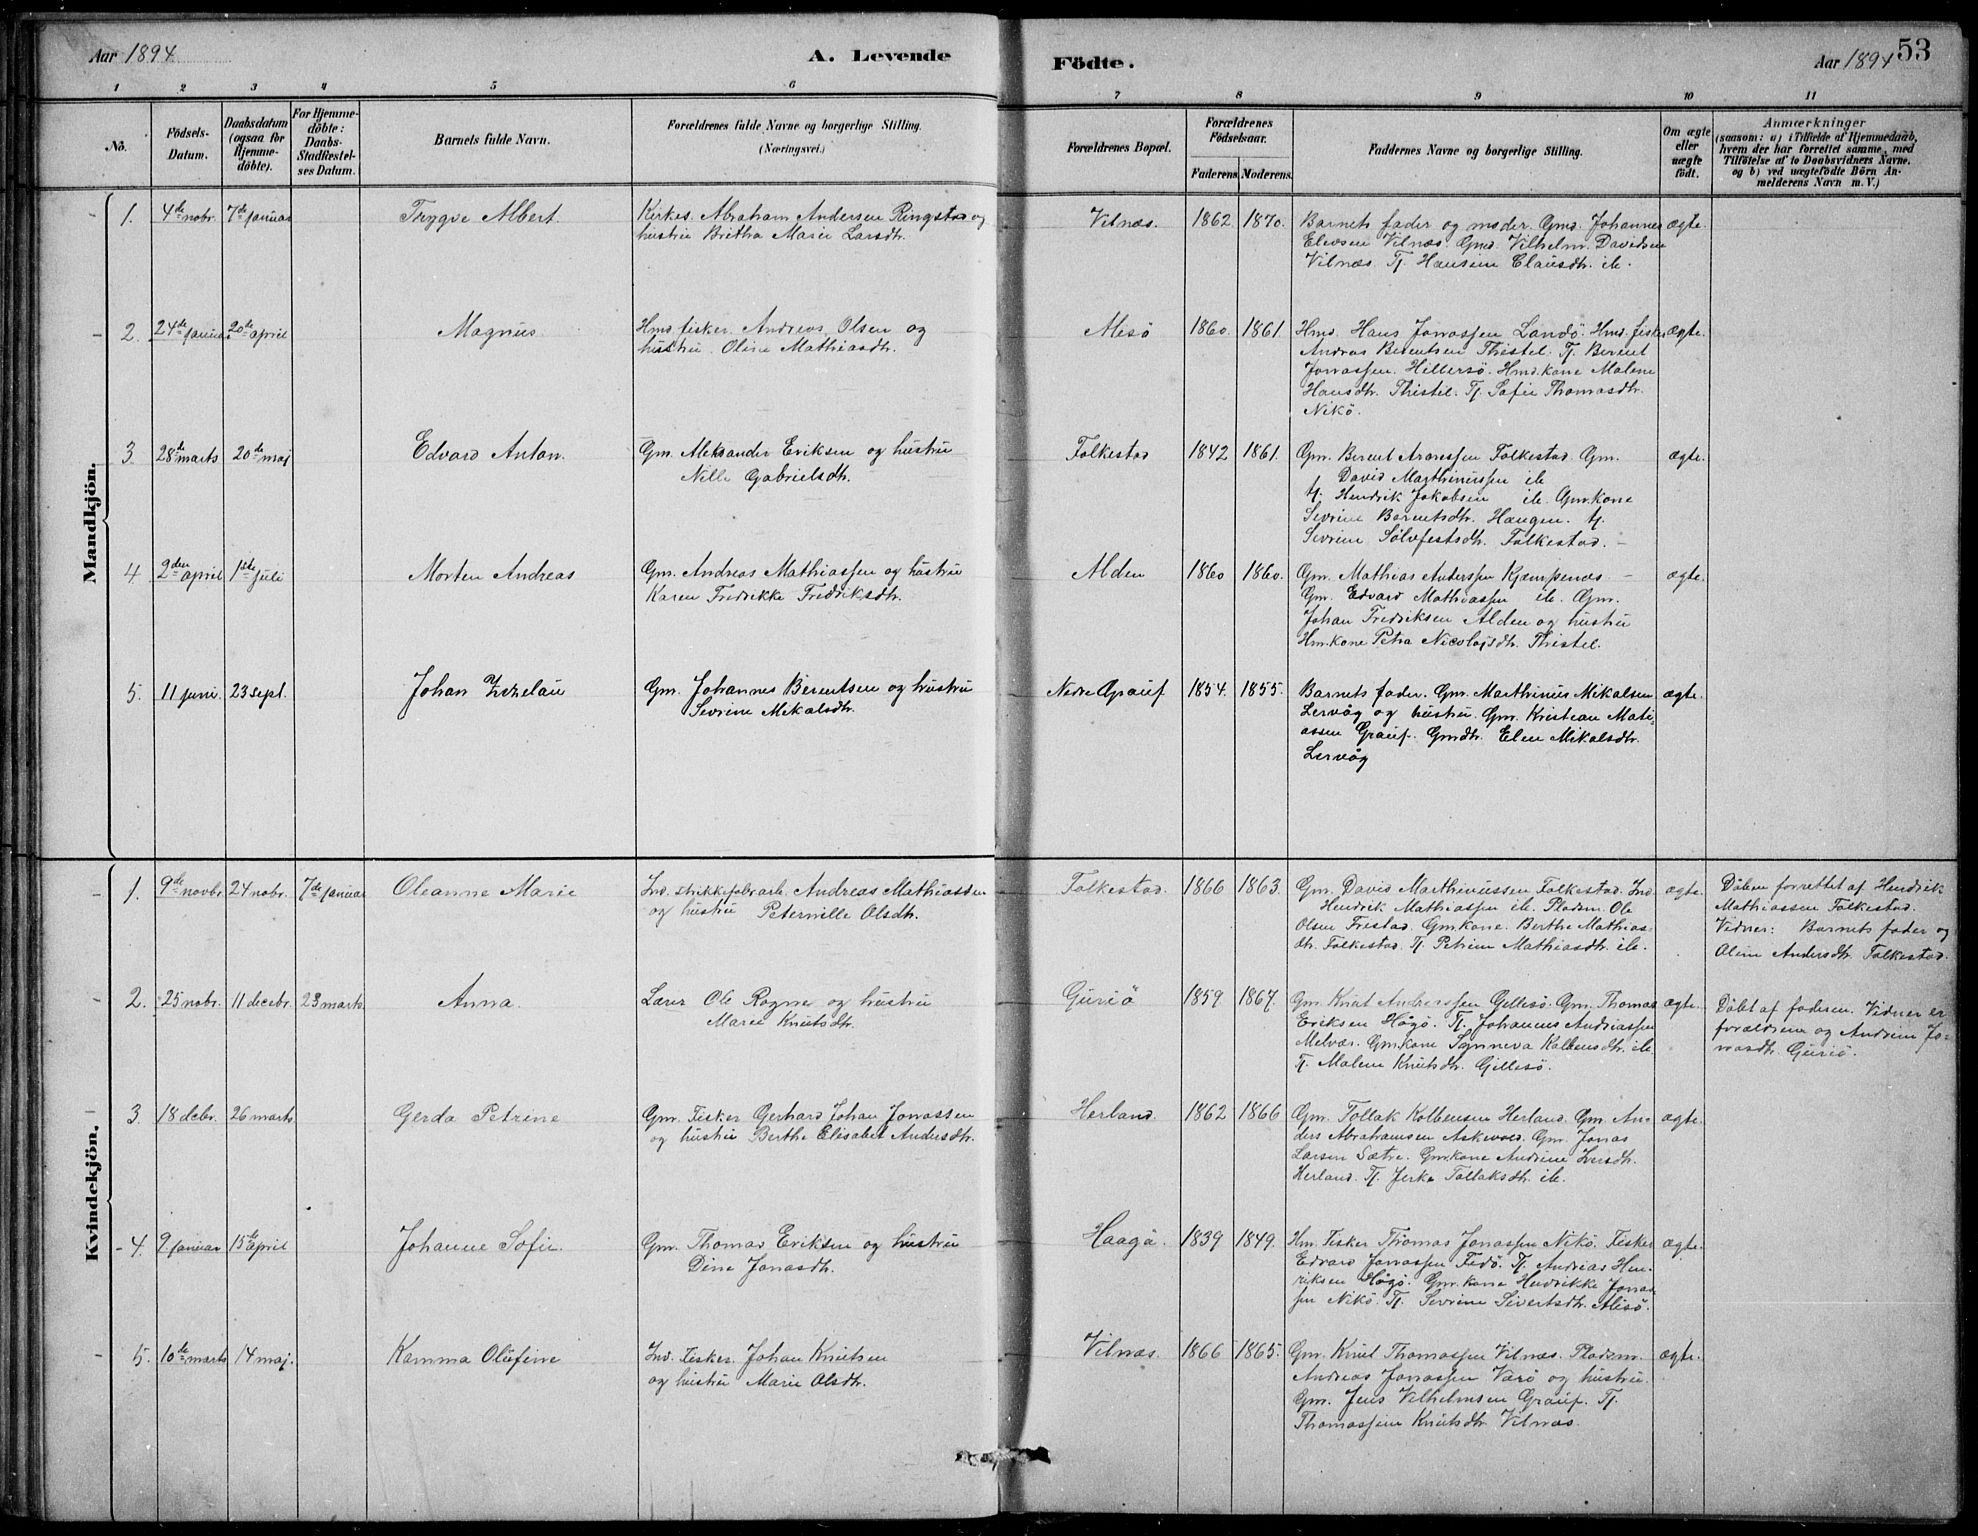 Aar 1894 A. Levende Födte. Aar 1894 53
1 2 3 4 5 6 7 8 9 10 11
No.
Födsels-Datum.
Daabsdatum (ogsaa for Hjemme-döbte).
For Hjemme-döbte: Daabs-Stadfæstel-ses Datum.
Barnets fulde Navn.
Forældrenes fulde Navne og borgerlige Stilling.
(Næringsvei.)
Forældrenes Bopæl.
Forældrenes Födselsaar.
Faderens Moderens
Faddernes Navne og borgerlige Stilling.
Om ægte eller uægte födt.
Anmærkninger
(saasom: a) i Tilfælde af Hjemmedaab,
hvem der har forrettet samme, med
Tilföielse af to Daabsvidners Navne.
og b) ved uægtefödte Börn An-
melderens Navn m. V.)
Mandkjön.
1. 4de nobr. 7de januar Trygve Albert. Kirkes. Abraham Andersen Ringstad og
hustru Bretha Marie Larsdtr.
Vilnæs. 1862 1870. Barnets fader og moder. Gmd. Johannes ægte.
Elevsen Vilnæs. Gmd. Vilhelm Davidsen
Vilnæs. Tj. Hansine Clausdtr. ib.
2. 24de januar 20de april Magnus Hmd. fisker. Andreas Olsen og
hustru Oline Mathiasdtr.
Alesö 1860. 1861. Hmd. Hans Jonassen Landö. Hmd. fisker ægte.
Andras Berentsen Thistel. Tj. Berent
Jonassen. Hillersö. Hmd. kone Malene
Hansdtr. Thistel. Tj. Sofie Thomasdtr.
Nikö.
3 28de marts 20de maj Edvard Anton. Gm. Aleksander Eriksen og hustru
Nille Gabrielsdtr.
Folkestad 1842 1861. Gm. Berent Folkestad. Gm. ægte.
David Marthinussen ib
tj. Hendrik Jakobsen ib. Gm.kone
Sevrine Berentsdtr. Haugen. tj.
Sevrine Sölvfestsdtr. Folkestad. -
4 2den april 1ste juli Morten Andreas Gm. Andreas Mathiassen og hustru
Karen Fredrikke Fredriksdtr.
Alden 1860 1860. Gm. Mathias Anderssen Kjempenæs. - ægte.
Gm. Edvard Mathiassen ib. Gm.
Johan Fredriksen Alden og hustru
Hm.kone Petra Nicolajsdtr. Thistel.
5. 11 juni. 23 sept. Johan Gm. Johannes Berentsen og hustru
Sevrine Mikalsdtr.
Nedre Grauf. 1854. 1855. Barnets fader. Gm. Marthinus Mikalsen ægte.
Lervåg og hustru. Gm. Kristian Mati
assen Grauf. Gmdtr. Elen Mikalsdtr.
Lervåg
Kvindekjön.
1. 9de novbr. 24 nobr. 7de januar Oleanne Marie Ind. Andreas Mathiassen
og hustru Peternille Olsdtr.
Folkestad. 1866 1863. Gm. David Marthinussen Folkestad. Ind ægte.
Hendrik Mathiassen ib. Pladsm. Ole
Olsen Frestad. Gm.kone. Berthe Mathias-
dtr. Folkestad. Tj. Petrine Mathiasdtr. ib.
Dåben forrettet af Hendrik
Mathiassen Folkestad.
Vidner: Barnets fader og
Oline Andersdtr. Folkestad.
2. 25 nobr. 11 decebr. 23 marts Anna. Lærer Ole Rogne og hustru
Marie Knutsdtr.
Guriö 1859 1867. Gm. Knut Anderssen Gillesö. Gm. Thomas ægte.
Eriksen Hågö. Tj. Johannes Andreassen
Melvær. Gm.kone Synneva Kolbensdtr. ib
Tj. Malene Knutsdtr. Gillesö.
Döbt af faderen. Vidner er
forældrene og Andrine Jo-
nasdtr. Guriö.
3 18 decbr. 26 marts Gerda Petrine Gm. Fisker Gerhard Johan Jonassen
og hustru Berthe Elisabet Andersdtr.
Herland. 1862 1866 Gm. Tollak Kolbensen Herland. Gm. An- ægte.
ders Abrahamsen Askevold. Gm. Jonas
Larsen Sætre. Gm.kone Andrine Iversdtr.
Herland. Tj. Jerke Tollaksdtr. ib.
4. 9 januar 15de april Johanne Sofie. Gm. Thomas Eriksen og hustru
Dine Jonasdtr.
Haagö. 1839 1849. Hm. Fisker Thomas Jonassen Nikö. Fisker ægte.
Edvard Jonassen Fedö. Tj. Andreas Hen-
riksen Hågö. Gm.kone Hendrikke Jonas
sen Nikö. Tj. Sevrine Sivertsdtr. Alesö.
5. 10de marts 14 maj. Kamma Olufine Ind. Fisker. Johan Knutsen
og hustru Marie Olsdtr.
Vilnæs. 1866 1865. Gm. Knut Thomassen Vilnæs. Pladsm. ægte.
Andreas Jonassen Værö og hustru.
Gm. Jens Vilhelmsen Grauf. Tj.
Thomassine Knutsdtr. Vilnæs.